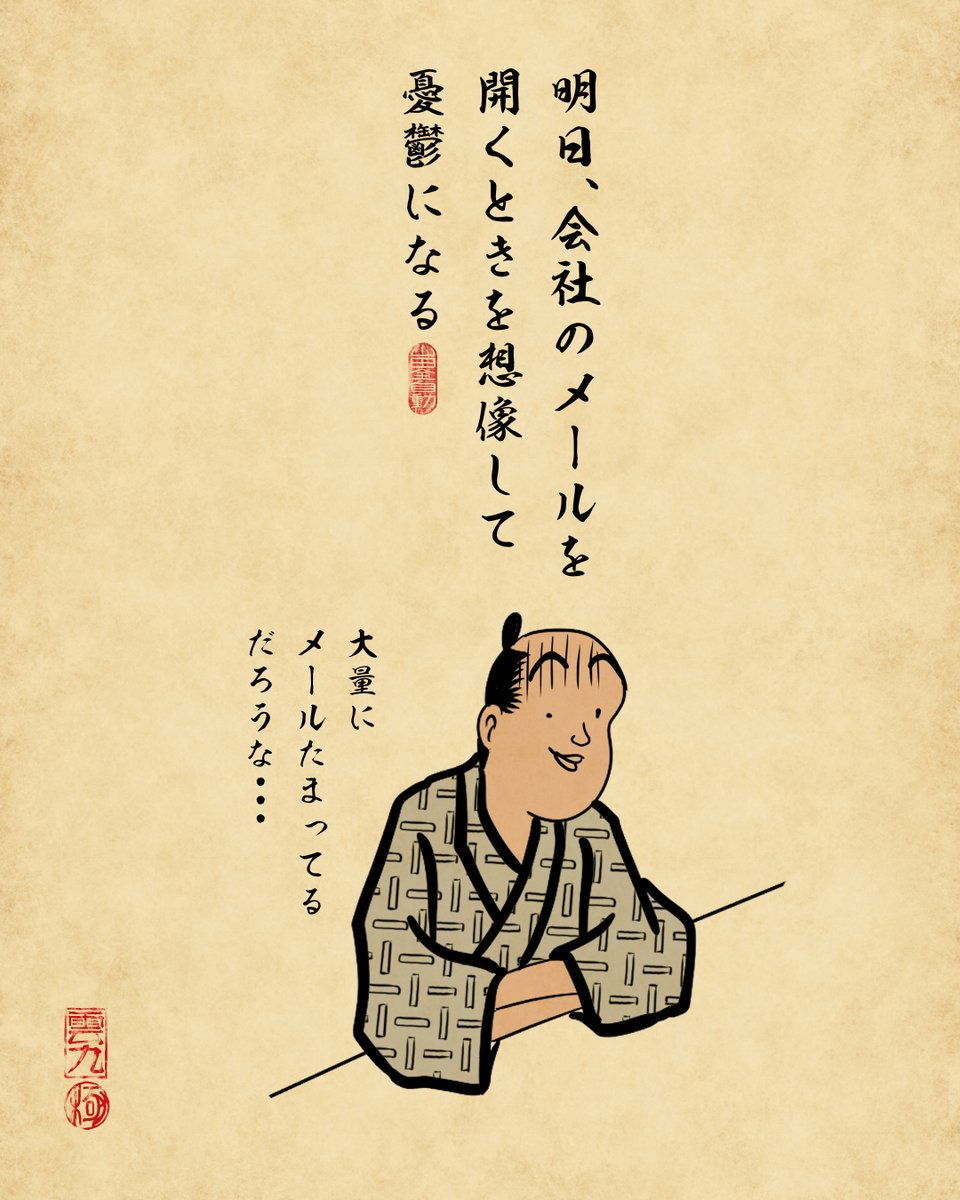 明日、会社のメールを
開くときを想像して
憂鬱になる
大量に
メールたまってる
だろうな・・・